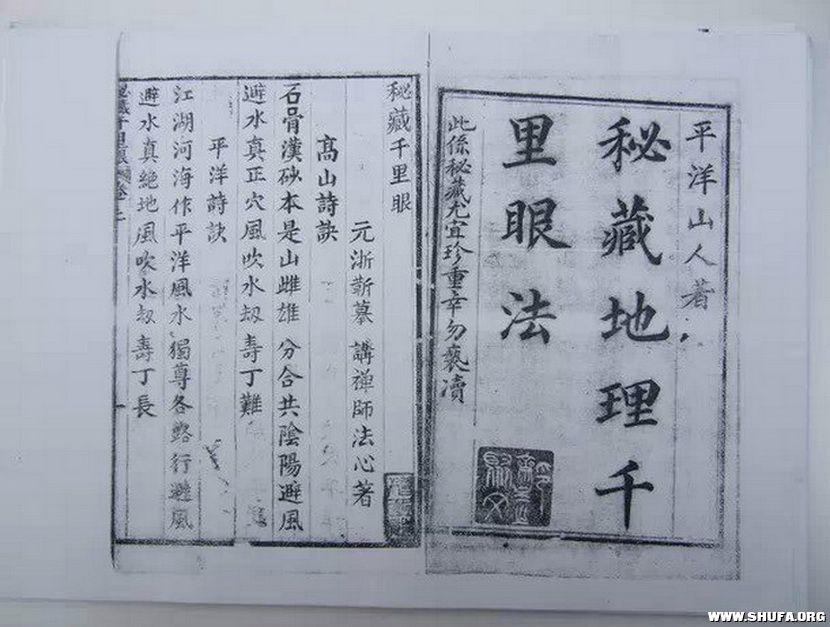 平洋山人著
秘藏地理千
里眼法
此係秘藏尤宜珍重幸勿褻瀆
秘藏千里眼
元浙靳慕講禅師法心著
髙山詩訣
石骨漢砂本是山雌雄分合共陰陽避風
避水真正穴風吹水刼壽丁難
平洋詩訣
江湖河海作平洋風水獨尊各路行避風
避水真絕地風吹水刼壽丁長
WWW.SHUFA.ORG